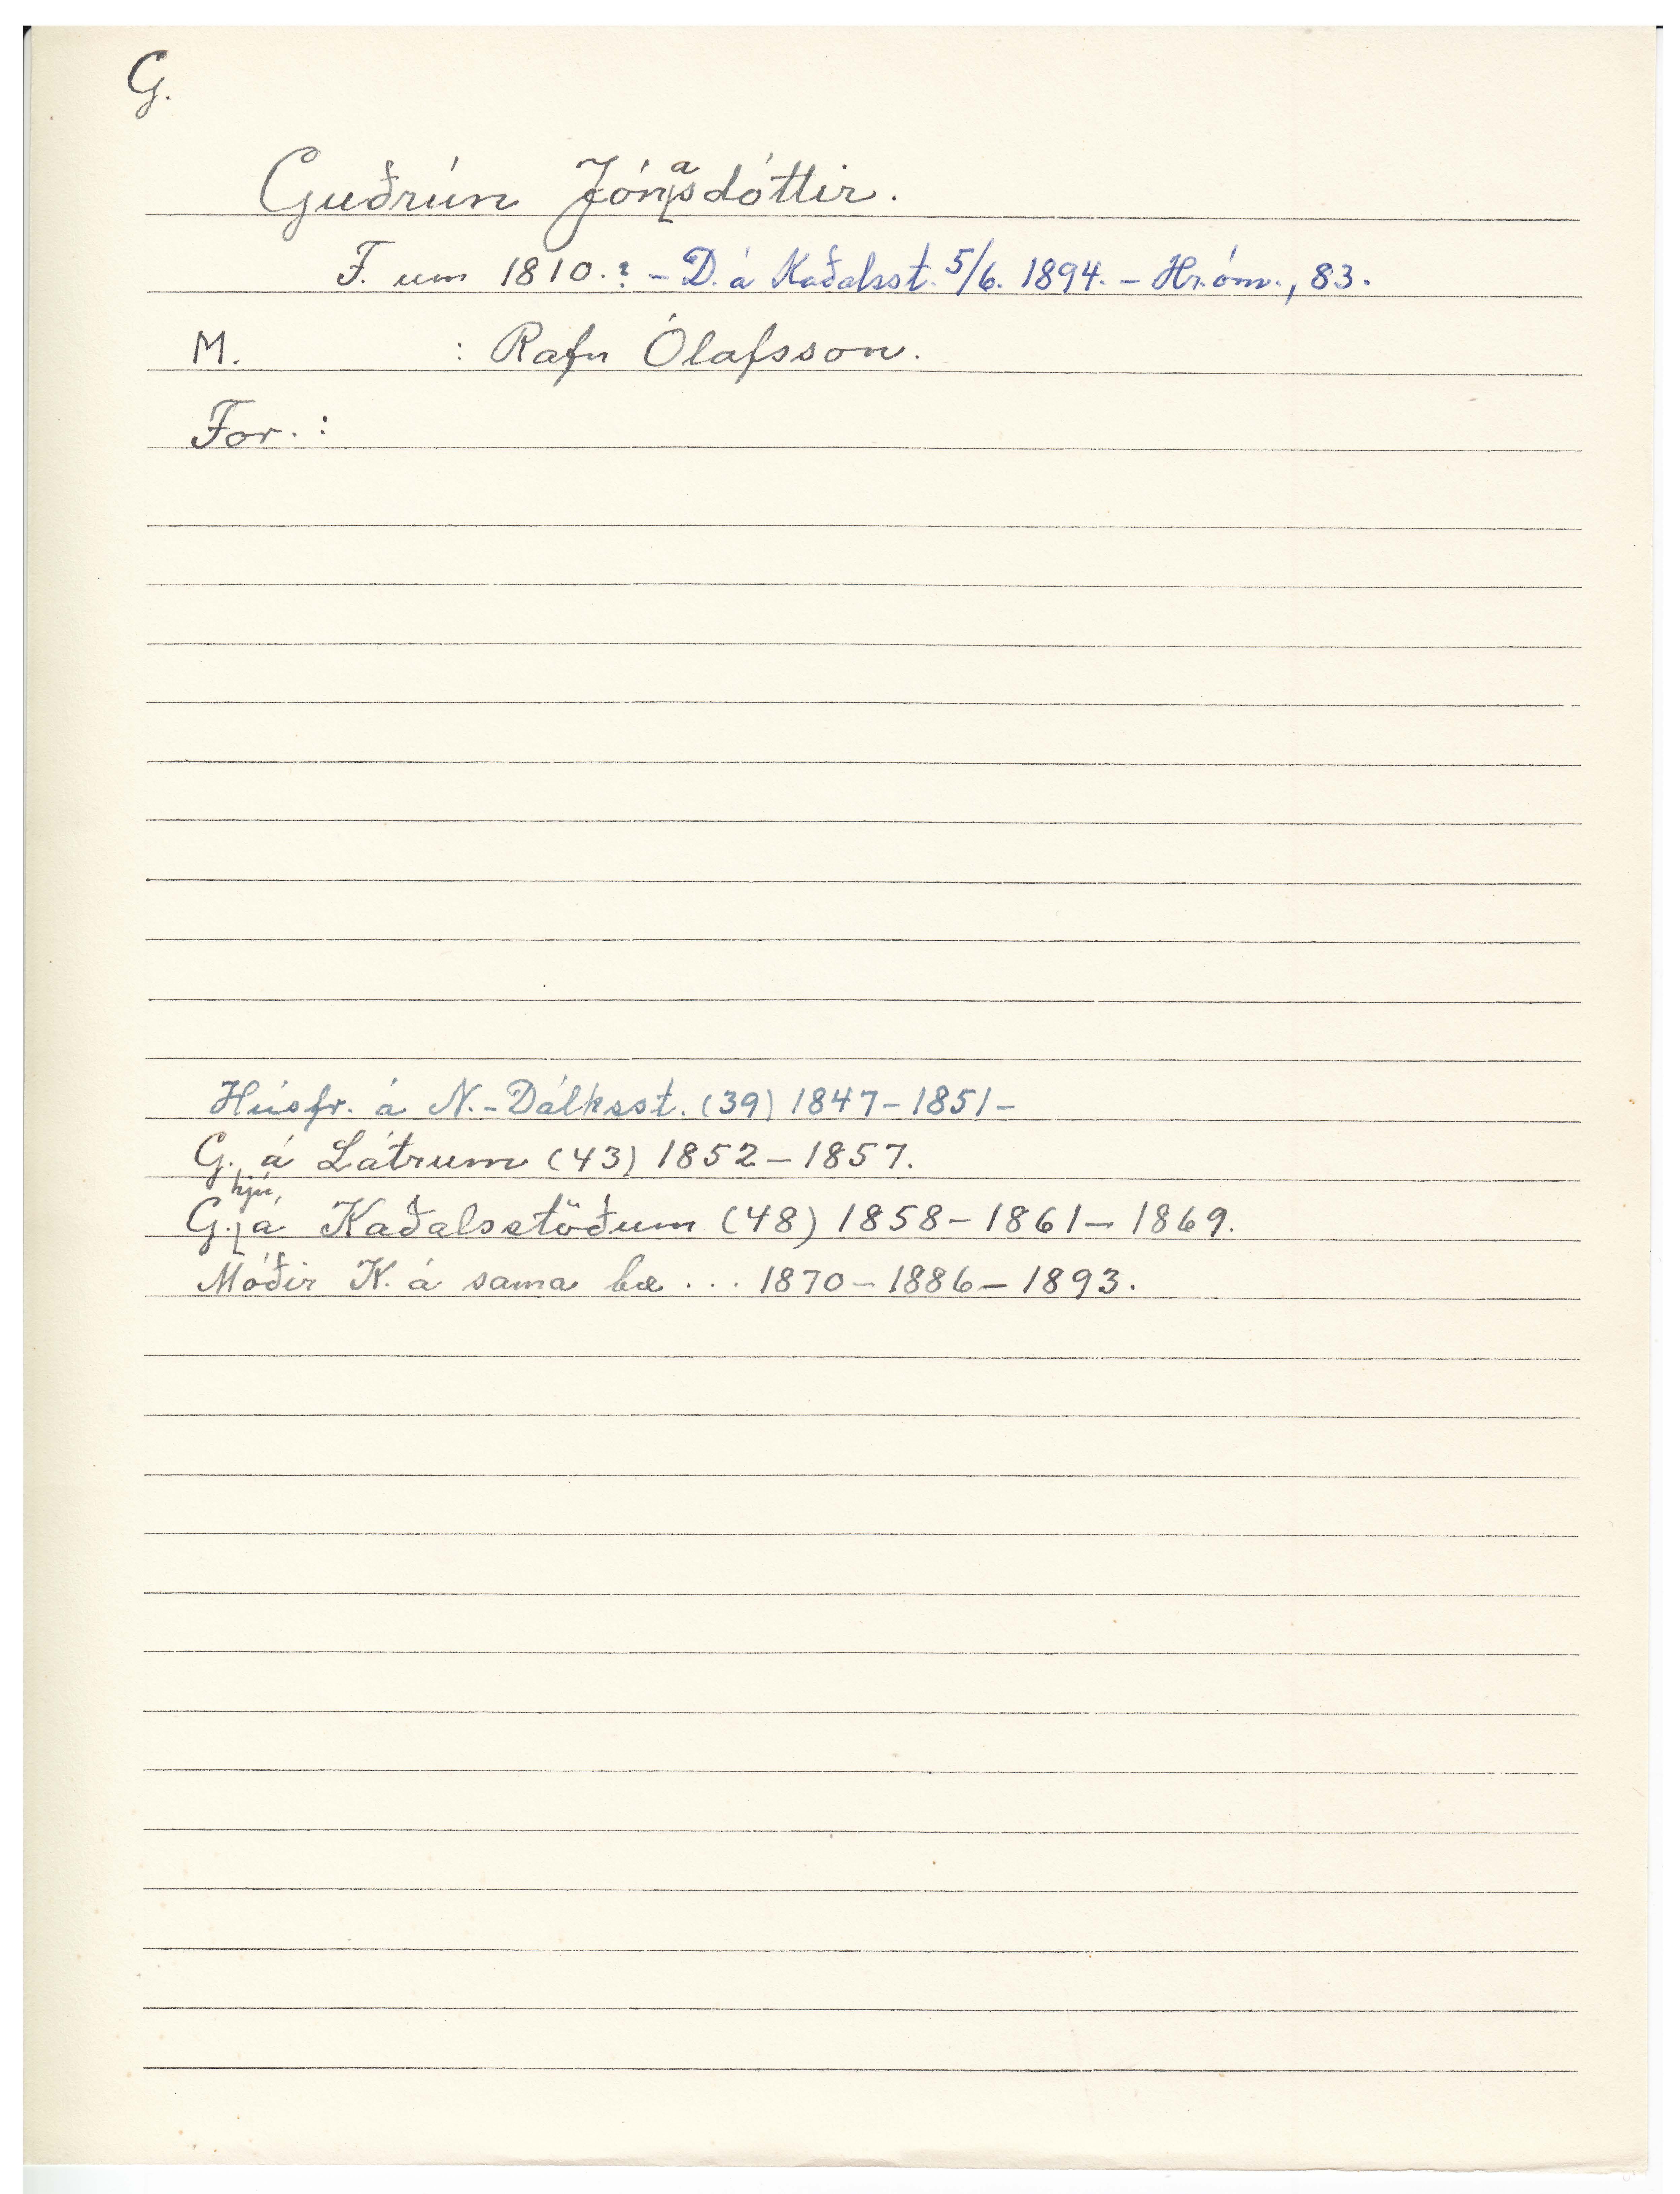 G.
Guðrún Jónasdóttir.
F. um 1810.? - D. á Kaðalsst. 5/6. 1894. - Hr.óm., 83.
M. : Rafn Ólafsson.
For. :
Húsfr. á N.-Dálksst. (39) 1847-1851-
G. á Látrum (43) 1852-1857.
G. hjú, á Kaðalsstöðum (48) 1858-1861-1869.
Móðir K. á sama bæ ... 1870-1886-1893.